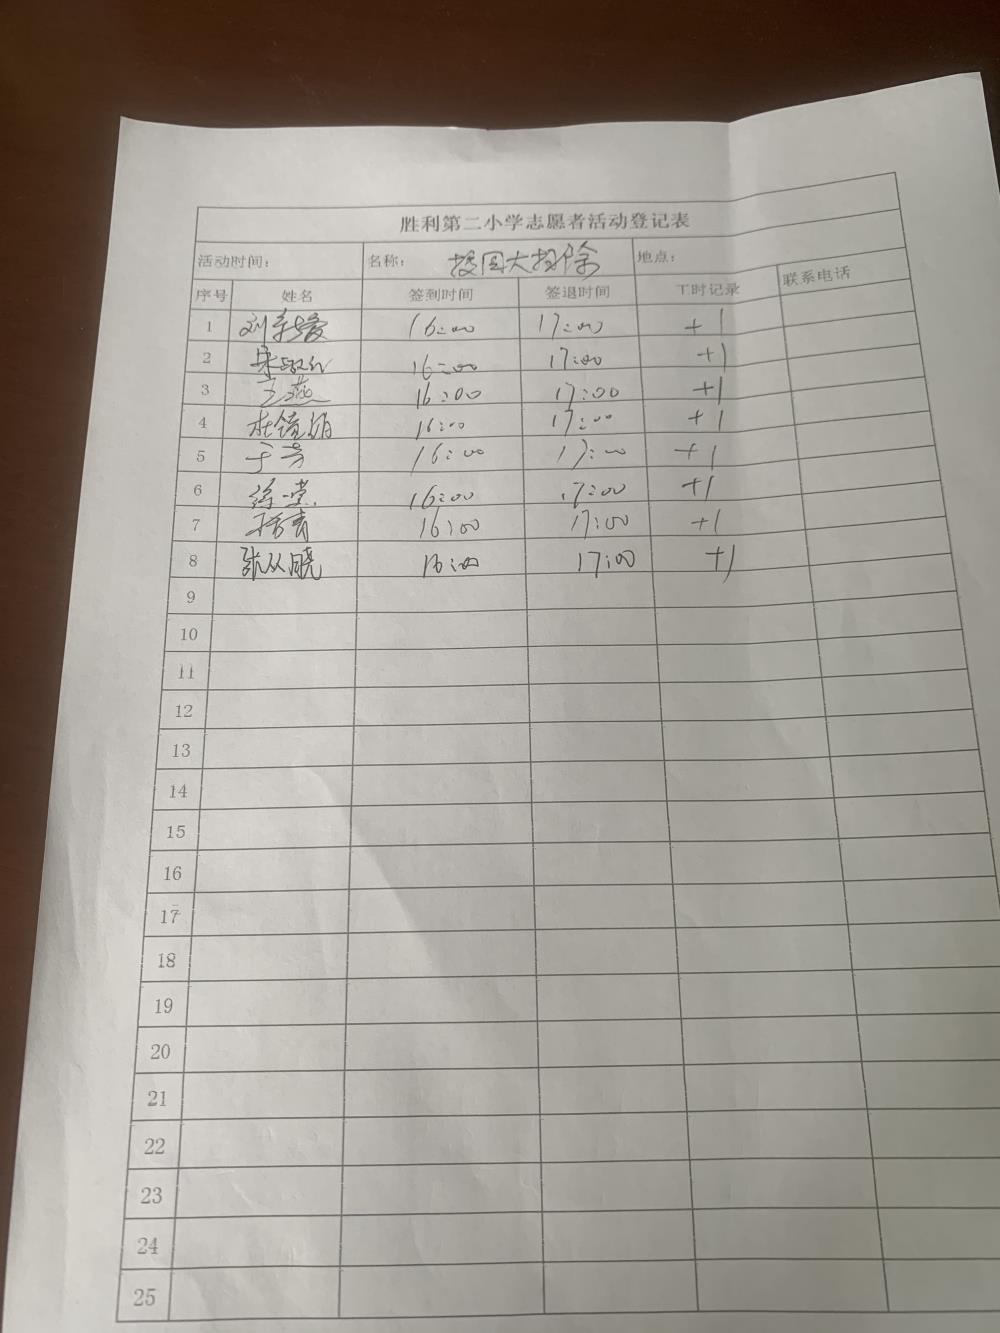 胜利第二小学志愿者活动登记表
活动时间： 名称：校园大扫除 地点：
序号 姓名 签到时间 签退时间 工时记录 联系电话
1 刘 16:00 17:00 +1
2 16:00 17:00 +1
3 王燕 16:00 17:00 +1
4 杜 娟 16:00 17:00 +1
5 于芳 16:00 17:00 +1
6 徐 16:00 17:00 +1
7 杨青 16:00 17:00 +1
8 张从晓 16:00 17:00 +1
9
10
11
12
13
14
15
16
17
18
19
20
21
22
23
24
25